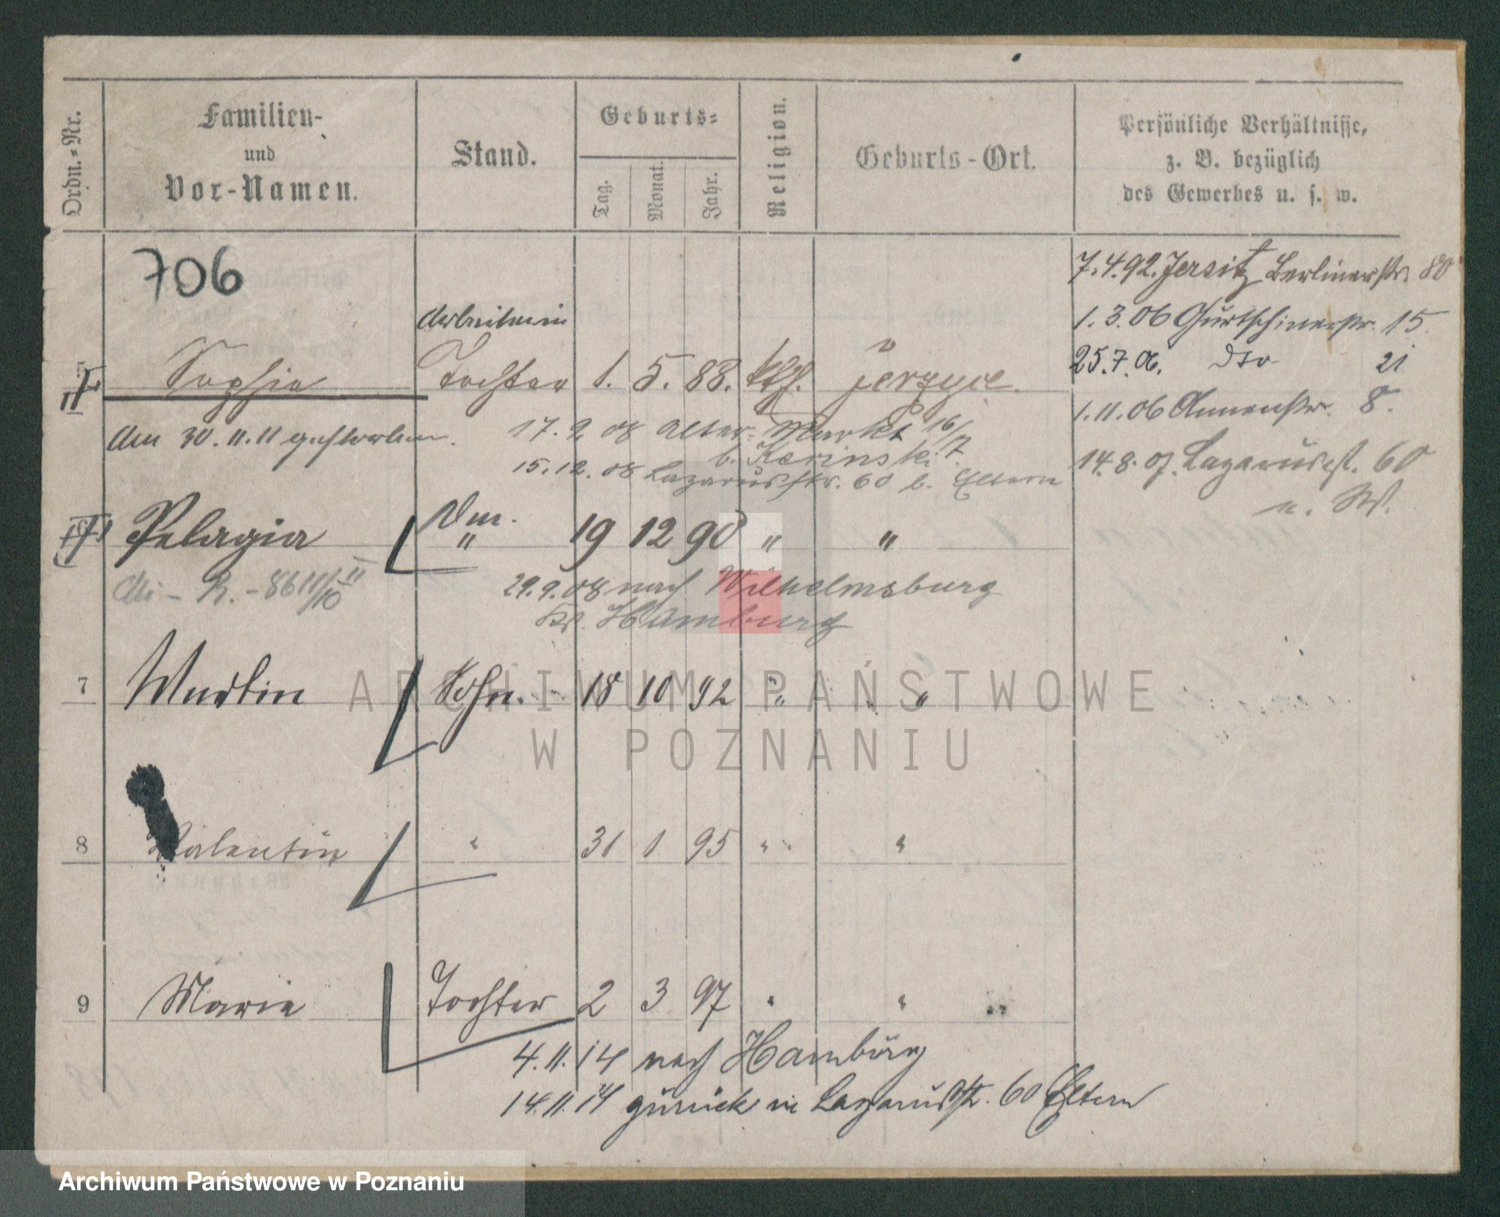 Ordn.-Nr.
Familien-
und
Vor-Namen.
Stand.
Geburts-
Tag.
Monat.
Jahr.
Religion.
Geburts-Ort.
Persönliche Verhältnisse,
z. B. bezüglich
des Gewerbes u. s. w.
706
7.4.92. Jersitz Berlinerstr. 80
1.3.06 Gurtschinerstr. 15
25.7.06. dto 21
1.11.06 Annenstr. 8.
14.8.07. Lazarusst. 60
Arbeiterin
Sophie Tochter 1. 5. 88. kth. Jerzyce.
Am 30.11.11 gestorben.
17.9 08 Alter-Markt 16/17
b. Karinski
15.12.08 Lazarusstr. 60 b. Eltern
Pelagia " 19 12 90 " "
29.9.08 nach Wilhelmsburg
Hamburg
7 Martin Sohn. 18 10 92 " "
8 Valentin " 31 1 95 " "
9 Marie Tochter 2 3 97 " "
4.11.14 nach Hamburg
14.11.14 zurück in Lazarusstr. 60 Eltern
ARCHIWUM PAŃSTWOWE
W POZNANIU
Archiwum Państwowe w Poznaniu